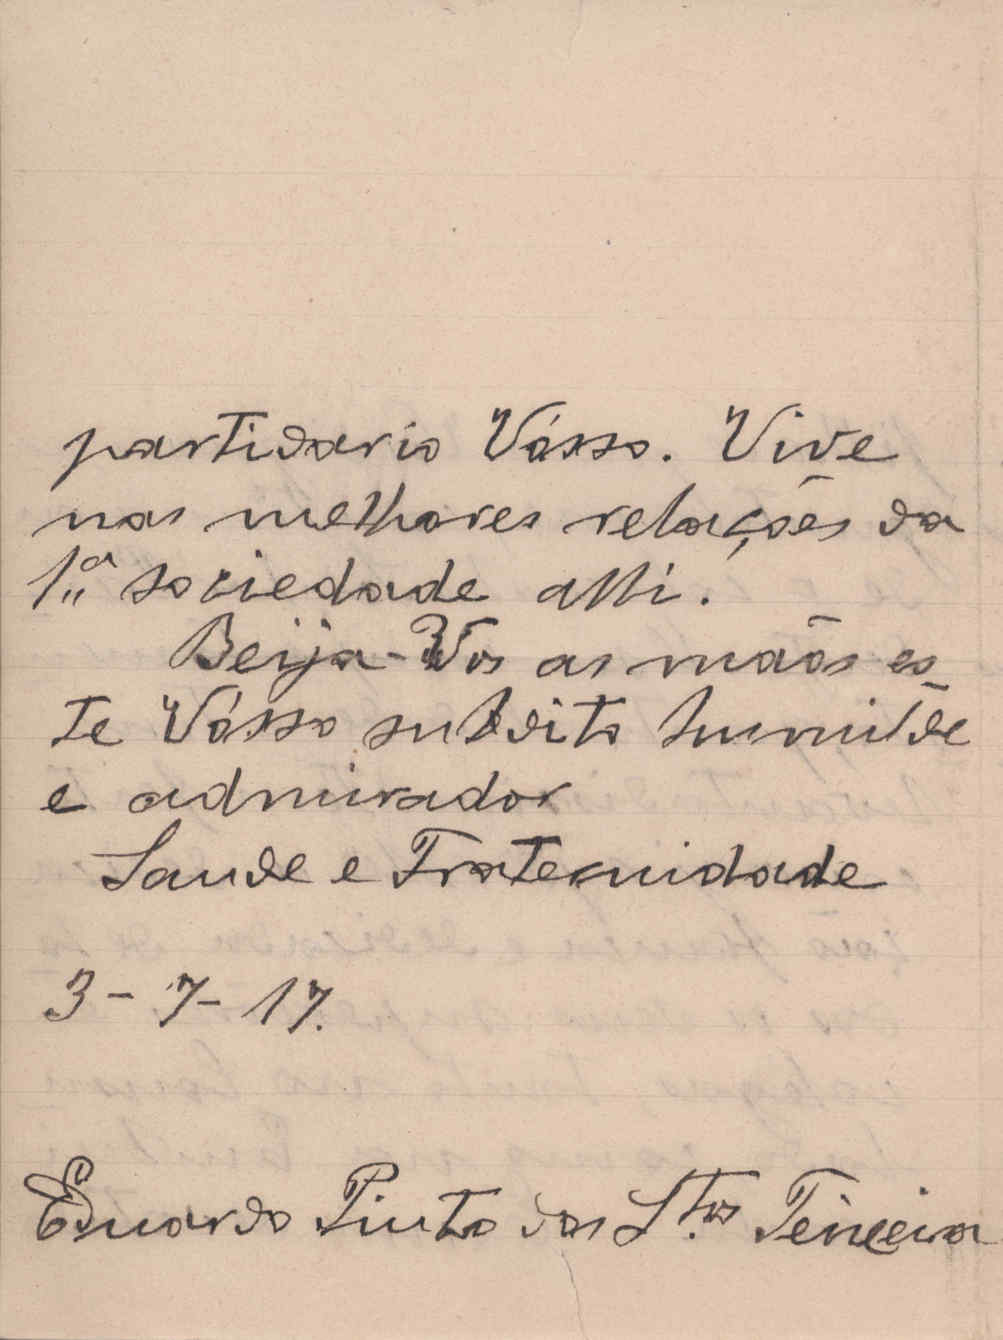 partidario Vósso. Vive
nas melhores relações da
1ª sociedade alli.
Beija-Vos as mãos es
te Vósso subdito humilde
e admirador
Saude e Fraternidade
3-7-17.
Eduardo Pinto dos S.tos Teixeira